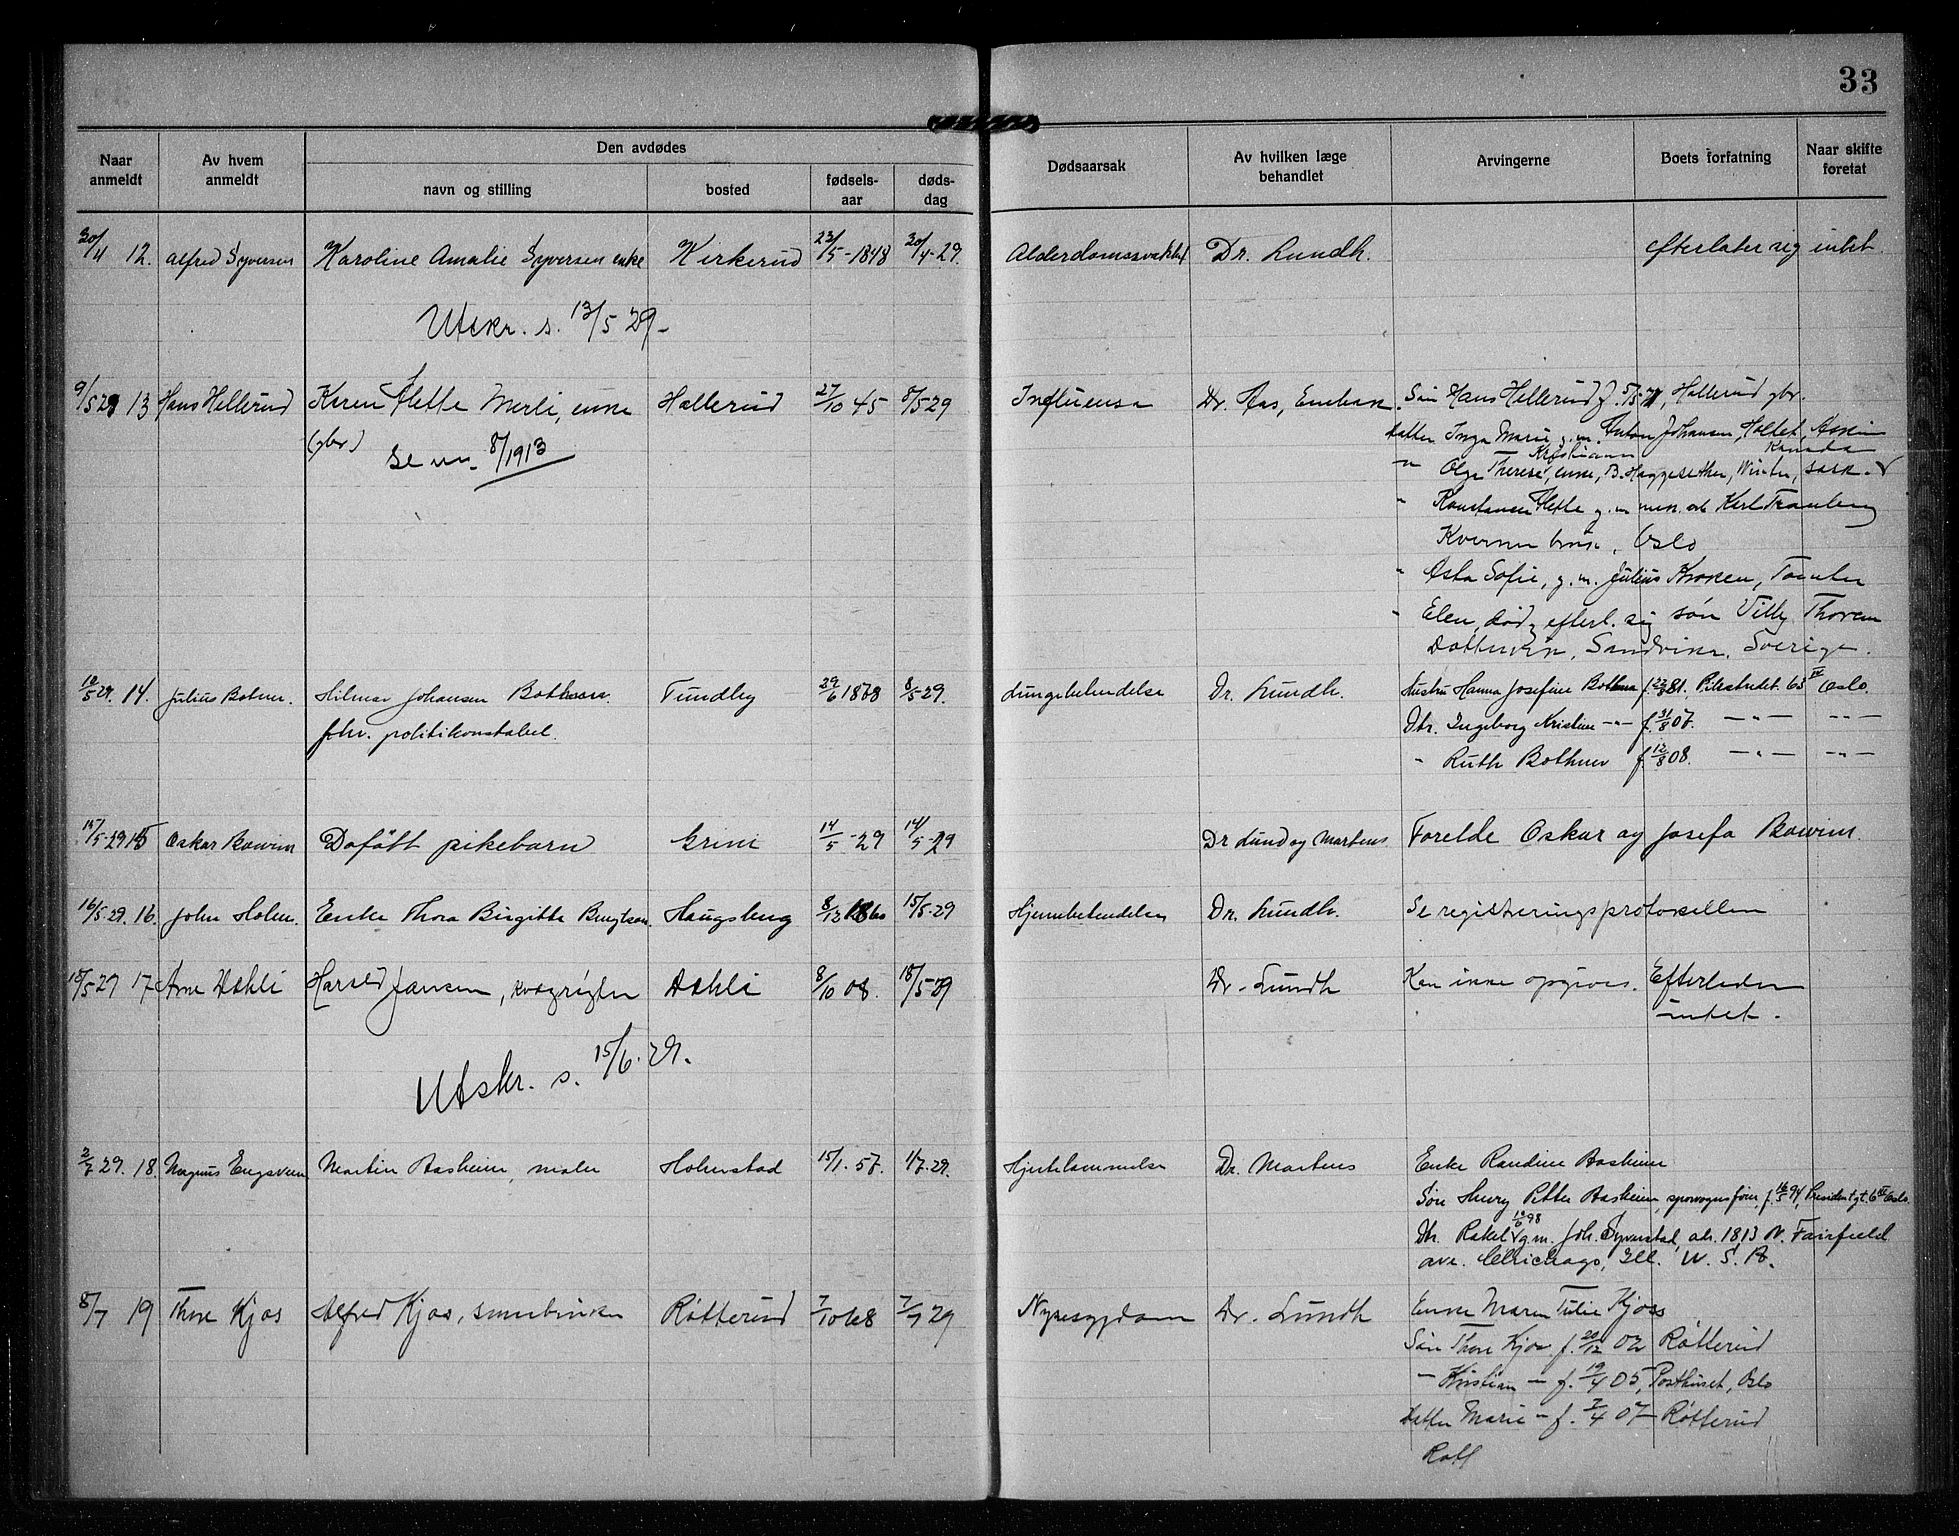 33
Naar anmeldt
Av hvem anmeldt
Den avdødes
navn og stilling
bosted
fødsels-aar
døds-dag
Dødsaarsak
Av hvilken læge behandlet
Arvingerne
Boets forfatning
Naar skifte foretat
30/4 12. Alfred Syversen Karoline Amalie Syversen enke Kirkerud 23/5-1848 30/4-29. Alderdomssvakhet Dr. Lundh. efterlater sig intet.
Utskr. s. 13/5 29-
9/5 29 13 Hans Hellerud Karen Alette Merli, enke Hallerud 27/10 45 8/5-29 Influensa Dr. Aas, Enebak. Søn Hans Hellerud f. 5/5-71, Hallerud gbr.
(gbr) Datter Inga Marie g.m. Anton Johansen, Holtet, Askim
Se nr. 8/1913 Kristiann Kanada
" Olga Therese, enke, B. Haggesether, Winter, Sask.
" Konstance Alette g.m. mek. arb. Karl Tranberg
Kværner bruk, Oslo
" Asta Sofie, g.m. Julius Kroken, Tomter
" Elen, død, efterl. sig søn Villy Thoren
Dottevik, Sandviken, Sverige.
10/5 29. 14. Julius Botner. Hilmar Johansen Bothner. Tundby 29/6 1878 8/5-29. Lungebetendelse Dr. Lundh. Hustru Hanna Josefine Bothner f. 27/8 81. Pilestredet 65 IV Oslo.
fhv. politikonstabel. Dtr. Ingeborg Kristine -"- f. 31/8 07. -"- -"-
" Ruth Bothner f. 12/8 08. -"- -"-
15/5-29 15 Oskar Bowim Døfött pikebarn Grini 14/5-29 14/5-29 Dr Lund og Martens Forelde Oskar og Josefa Bowim.
16/5 29. 16. John Holm. Enke Thora Birgitte Bengtsen. Haugsberg 8/12 1860 15/5-29 Hjernebetendelse Dr. Lundh. Se registreringsprotokollen
18/5-29 17 Arne Dahli Harald Jansen, kvægrøgter Dahli 8/10 08. 18/5-29 Dr. Lundh Kan ikke opgives. Efterlader
intet.
Utskr. s. 15/6. 29.
2/7 29. 18. Magnus Engsveen Martin Aasheim, maler Holmstad 15/1. 57. 1/7. 29. Hjertelammelse Dr. Martens Enke Randine Aasheim
Søn Henry Petter Aasheim, sporvognsfører, f. 16/5 94, Presidentgt. 6 III Oslo.
Dtr. Rakel 10/6 98 g.m. Joh. Syverstad, adr. 1813 N. Fairfield
ave. Chichago, Ill. U.S.A.
8/7 19 Thore Kjos Alfred Kjos, smaabruker Røtterud 7/10 68 7/7 29 Nyresygdom Dr. Lundh Enke Maren Tilie Kjoss
Søn Thore Kjos f. 20/12 02 Røtterud
" Kristian - f. 19/4 05, Posthuset, Oslo
Datter Marie - f. 7/4 07 Røtterud
Rolf